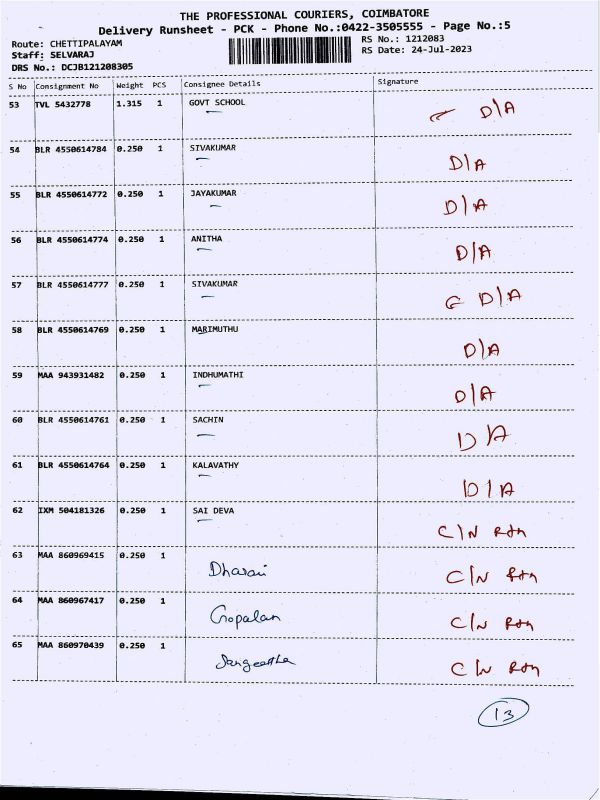 THE PROFESSIONAL COURIERS, COIMBATORE
Delivery Runsheet - PCK - Phone No.:0422-3505555 - Page No.:5
Route: CHETTIPALAYAM RS No.: 1212083
Staff: SELVARAJ RS Date: 24-Jul-2023
DRS No.: DCJB121208305
S No Consignment No Weight PCS Consignee Details Signature
53 TVL 5432778 1.315 1 GOVT SCHOOL D/A
54 BLR 4550614784 0.250 1 SIVAKUMAR D/A
55 BLR 4550614772 0.250 1 JAYAKUMAR D/A
56 BLR 4550614774 0.250 1 ANITHA D/A
57 BLR 4550614777 0.250 1 SIVAKUMAR D/A
58 BLR 4550614769 0.250 1 MARIMUTHU D/A
59 MAA 943931482 0.250 1 INDHUMATHI D/A
60 BLR 4550614761 0.250 1 SACHIN D/A
61 BLR 4550614764 0.250 1 KALAVATHY D/A
62 IXM 504181326 0.250 1 SAI DEVA C/N
63 MAA 860969415 0.250 1 C/N
64 MAA 860967417 0.250 1 Gopalan C/N
65 MAA 860970439 0.250 1 Sangeetha C/N
13